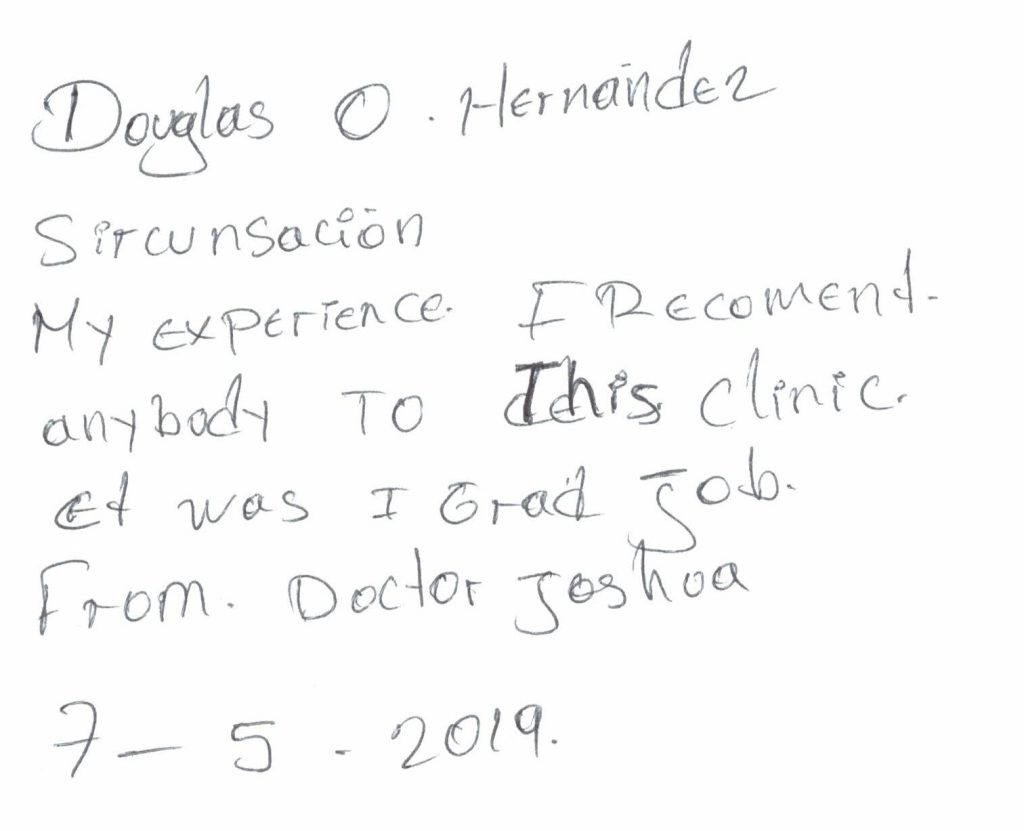 Douglas O. Hernández
Sircunsación
My experience. I Recomend.
anybody To This clinic.
Et was I Grad Job.
From. Doctor Joshoa
7 - 5 - 2019.